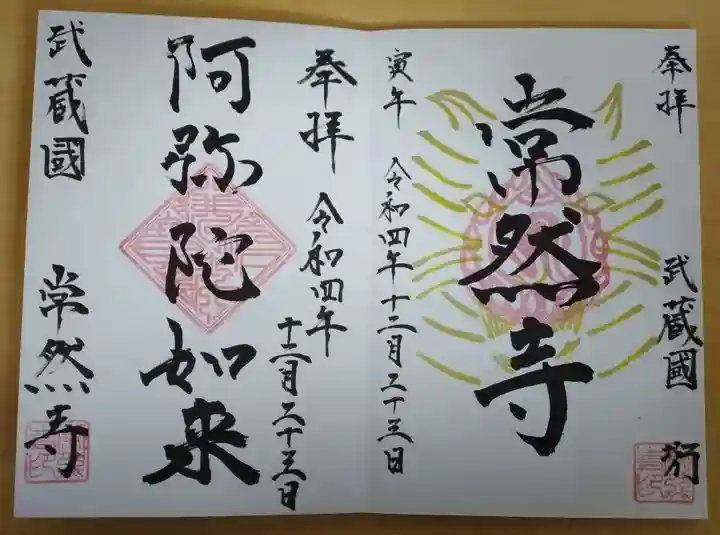 奉拝
武蔵國
常然寺
寅年 令和四年十二月二十三日
奉拝 令和四年
十二月二十三日
阿弥陀如来
武蔵國 常然寺